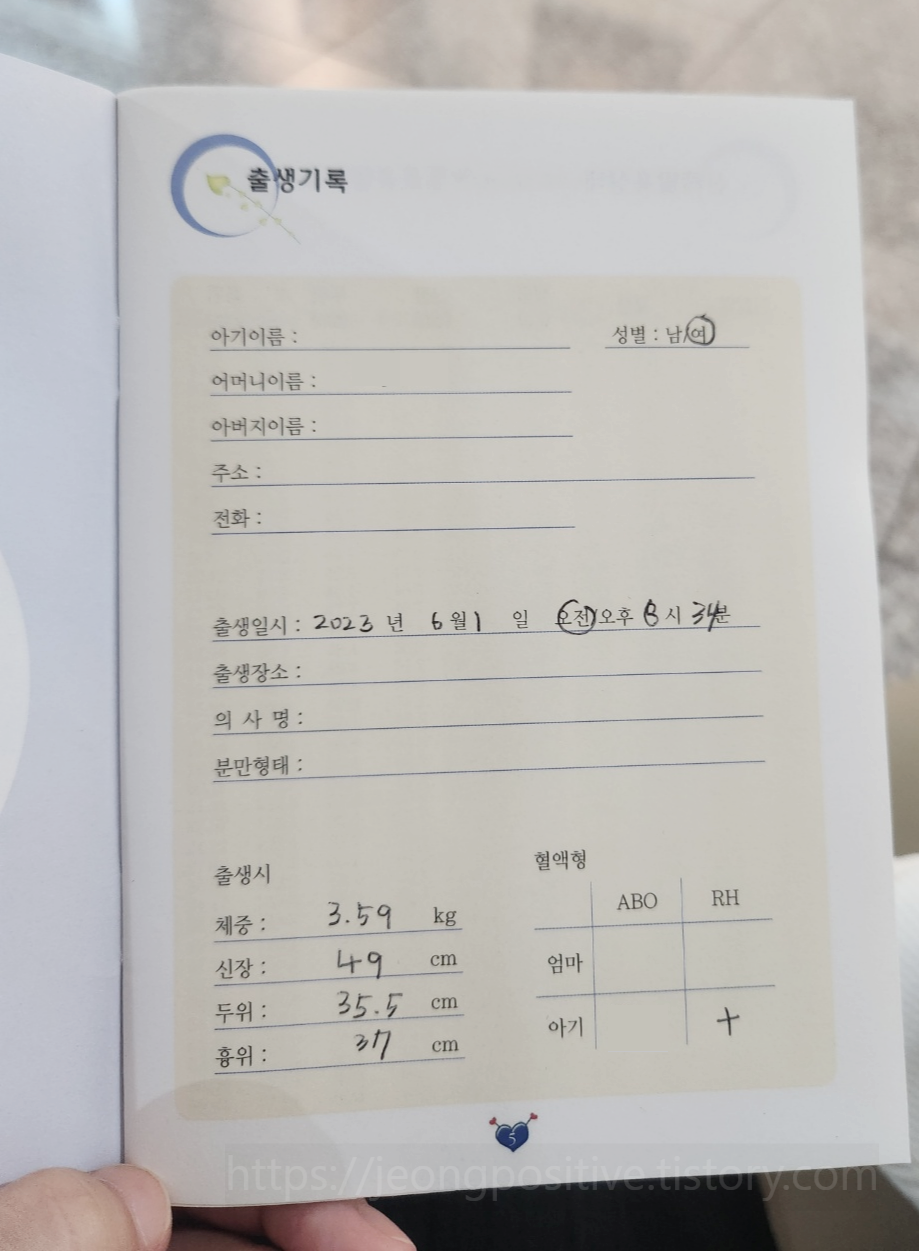 출생기록
아기이름 : 성별 : 남/여
어머니이름 :
아버지이름 :
주소 :
전화 :
출생일시 : 2023 년 6 월 1 일 오전/오후 8 시 34 분
출생장소 :
의 사 명 :
분만형태 :
출생시
체중 : 3.59 kg
신장 : 49 cm
두위 : 35.5 cm
흉위 : 37 cm
혈액형
ABO RH
엄마
아기 +
5
https://jeongpositive.tistory.com